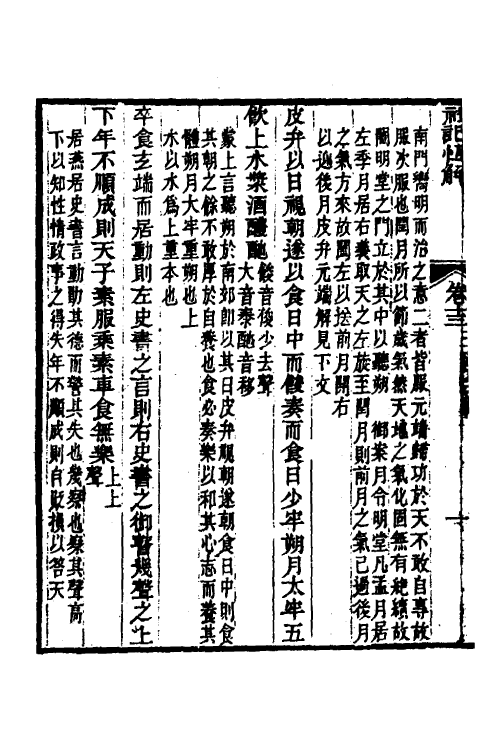 禮記恆解
卷十三
十
南門嚮明而治之意二者皆服元端歸功於天不敢自專故
服次服也閏月所以節歲氣然天地之氣化固無有絕續故
闔明堂之門立於其中以聽朔 御案月令明堂凡孟月居
左季月居右義取天之左旋至閏月則前月之氣已過後月
之氣方來故闔左以拴前月闢右
以迎後月皮弁元端解見下文
皮弁以日視朝遂以食日中而餕奏而食日少牢朔月太牢五
飲上水漿酒醴酏
餕音俊少去聲
大音泰酏音移
蒙上言聽朔於南郊即以其日皮弁視朝遂朝食日中則食
其朝之餘不敢厚於自養也食必奏樂以和其心志而養其
體朔月大牢重朔也上
水以水為上重本也
卒食玄端而居動則左史書之言則右史書之御瞽幾聲之上
下年不順成則天子素服乘素車食無樂
上上
聲
居燕居史書言動勸其德而警其失也幾察也察其聲高
下以知性情政事之得失年不順成則自貶損以答天